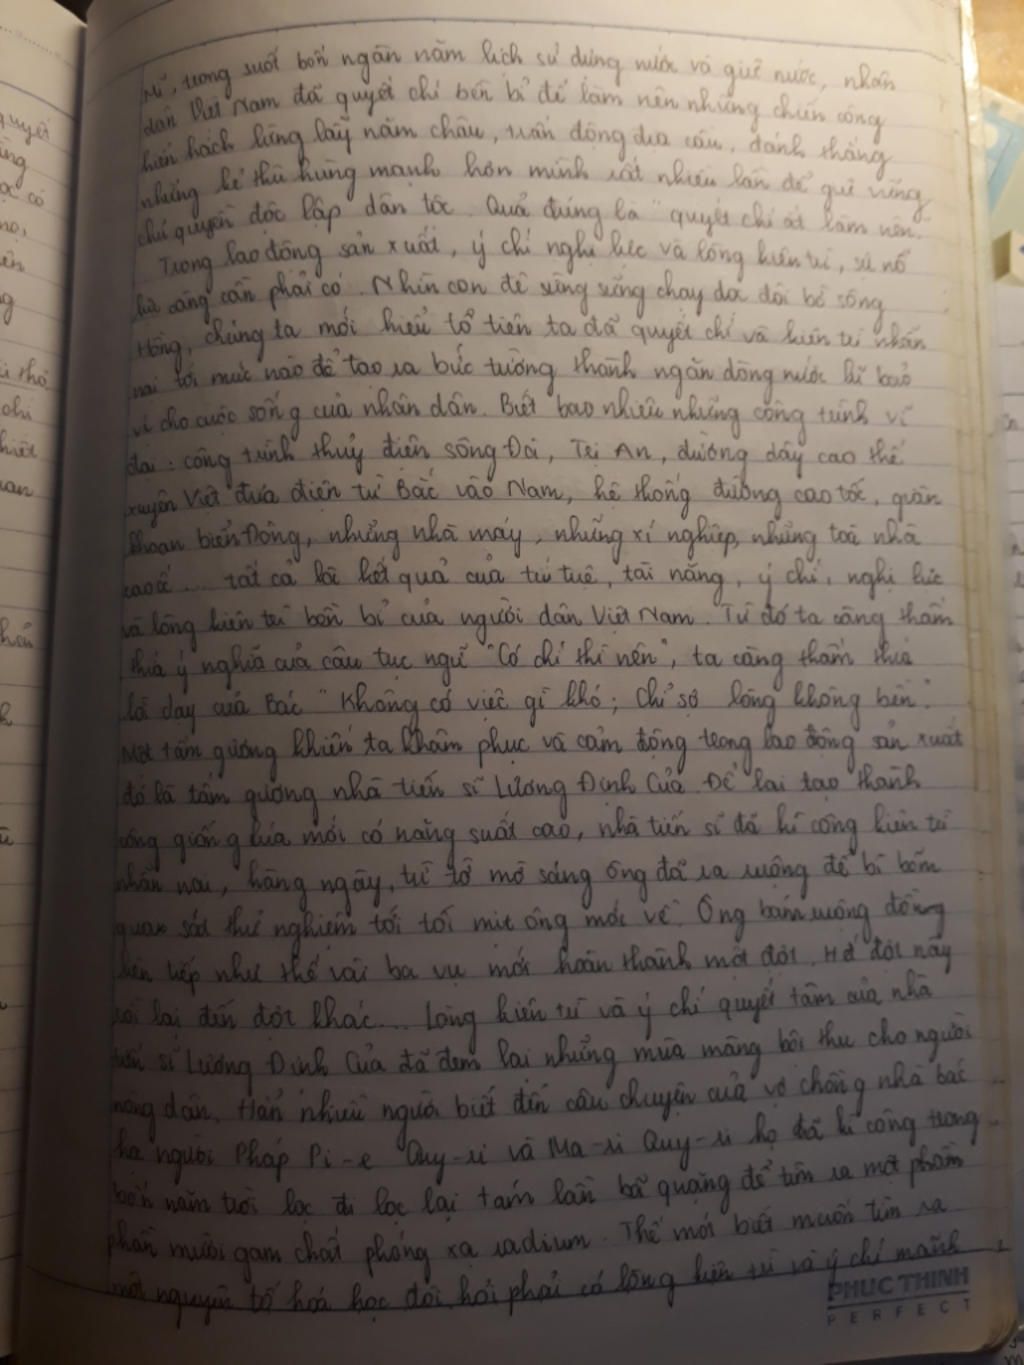 Mĩ, trong suốt bốn ngàn năm lịch sử dựng nước và giữ nước, nhân
dân Việt Nam đã quyết chí bền bỉ để làm nên những chiến công
hiển hách lừng lẫy năm châu, trấn động địa cầu, đánh thắng
những kẻ thù hùng mạnh hơn mình rất nhiều lần để giữ vững
chủ quyền độc lập dân tộc. Quả đúng là "quyết chí ắt làm nên.
Trong lao động sản xuất, ý chí nghị lực và lòng kiên trì, sự nổ
lực càng cần phải có. Nhìn con đê sừng sững chạy dọc đôi bờ sông
Hồng, chúng ta mới hiểu tổ tiên ta đã quyết chí và kiên trì nhẫn
nại tới mức nào để tạo ra bức tường thành ngăn dòng nước lũ bảo
vệ cho cuộc sống của nhân dân. Biết bao nhiêu những công trình vĩ
đại: công trình thuỷ điện sông Đà, Trị An, đường dây cao thế
xuyên Việt đưa điện từ Bắc vào Nam, hệ thống đường cao tốc, giàn
khoan biển Đông, những nhà máy, những xí nghiệp, những toà nhà
cao ốc... tất cả là kết quả của trí tuệ, tài năng, ý chí, nghị lực
và lòng kiên trì bền bỉ của người dân Việt Nam. Từ đó ta càng thấm
thía ý nghĩa của câu tục ngữ "Có chí thì nên", ta càng thấm thía
lời dạy của Bác "Không có việc gì khó; Chỉ sợ lòng không bền".
Một tấm gương khiến ta khâm phục và cảm động trong lao động sản xuất
đó là tấm gương nhà tiến sĩ Lương Định Của. Để lai tạo thành
công giống lúa mới có năng suất cao, nhà tiến sĩ đã kì công kiên trì
nhẫn nại, hàng ngày, từ tờ mờ sáng ông đã ra ruộng để bì bõm
quan sát thử nghiệm tới tối mịt ông mới về. Ông bám ruộng đồng
liên tiếp như thế vài ba vụ mới hoàn thành một đợt. Hết đợt này
rồi lại đến đợt khác.... Lòng kiên trì và ý chí quyết tâm của nhà
tiến sĩ Lương Định Của đã đem lại những mùa màng bội thu cho người
nông dân. Hẳn nhiều người biết đến câu chuyện của vợ chồng nhà bác
học người Pháp Pi-e Quy-ri và Ma-ri Quy-ri họ đã kì công trong
bốn năm trời lọc đi lọc lại tám tấn bã quặng để tìm ra một phần
phần mười gam chất phóng xạ radium. Thế mới biết muốn tìm ra
một nguyên tố hoá học đòi hỏi phải có lòng kiên trì và ý chí mạnh
PHUC THINH
PERFECT